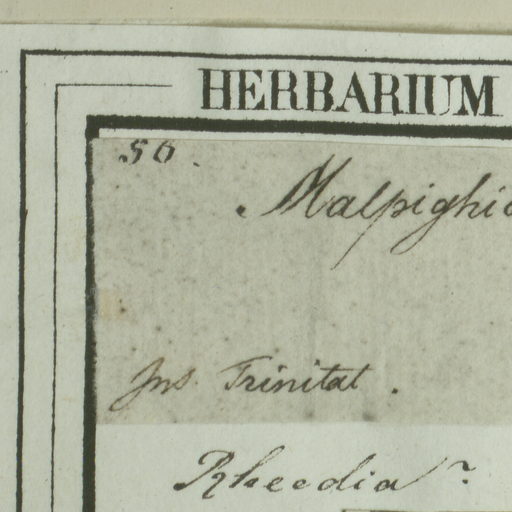 HERBARIUM
56.
Malpighia
Ins. Trinitat.
Rheedia?